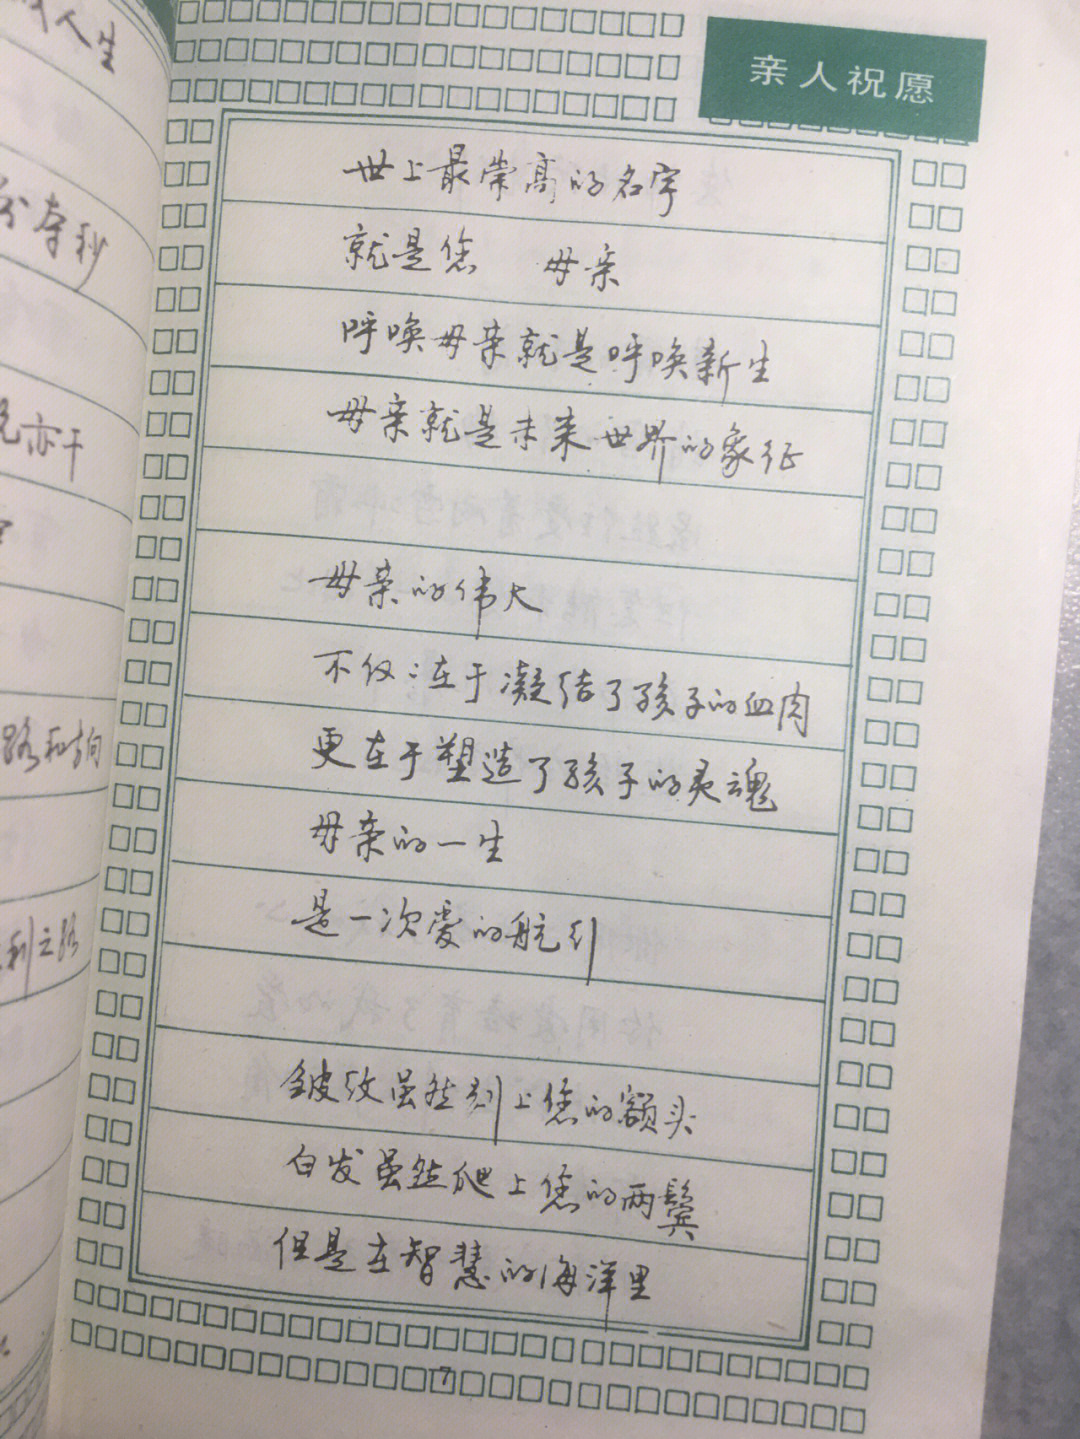 亲人祝愿
世上最崇高的名字
就是您 母亲
呼唤母亲就是呼唤新生
母亲就是未来世界的象征
母亲的伟大
不仅在于凝结了孩子的血肉
更在于塑造了孩子的灵魂
母亲的一生
是一次爱的航行
皱纹虽然刻上您的额头
白发虽然爬上您的两鬓
但是在智慧的海洋里
7
人生
夺秒
亦干
路和方向
利之路